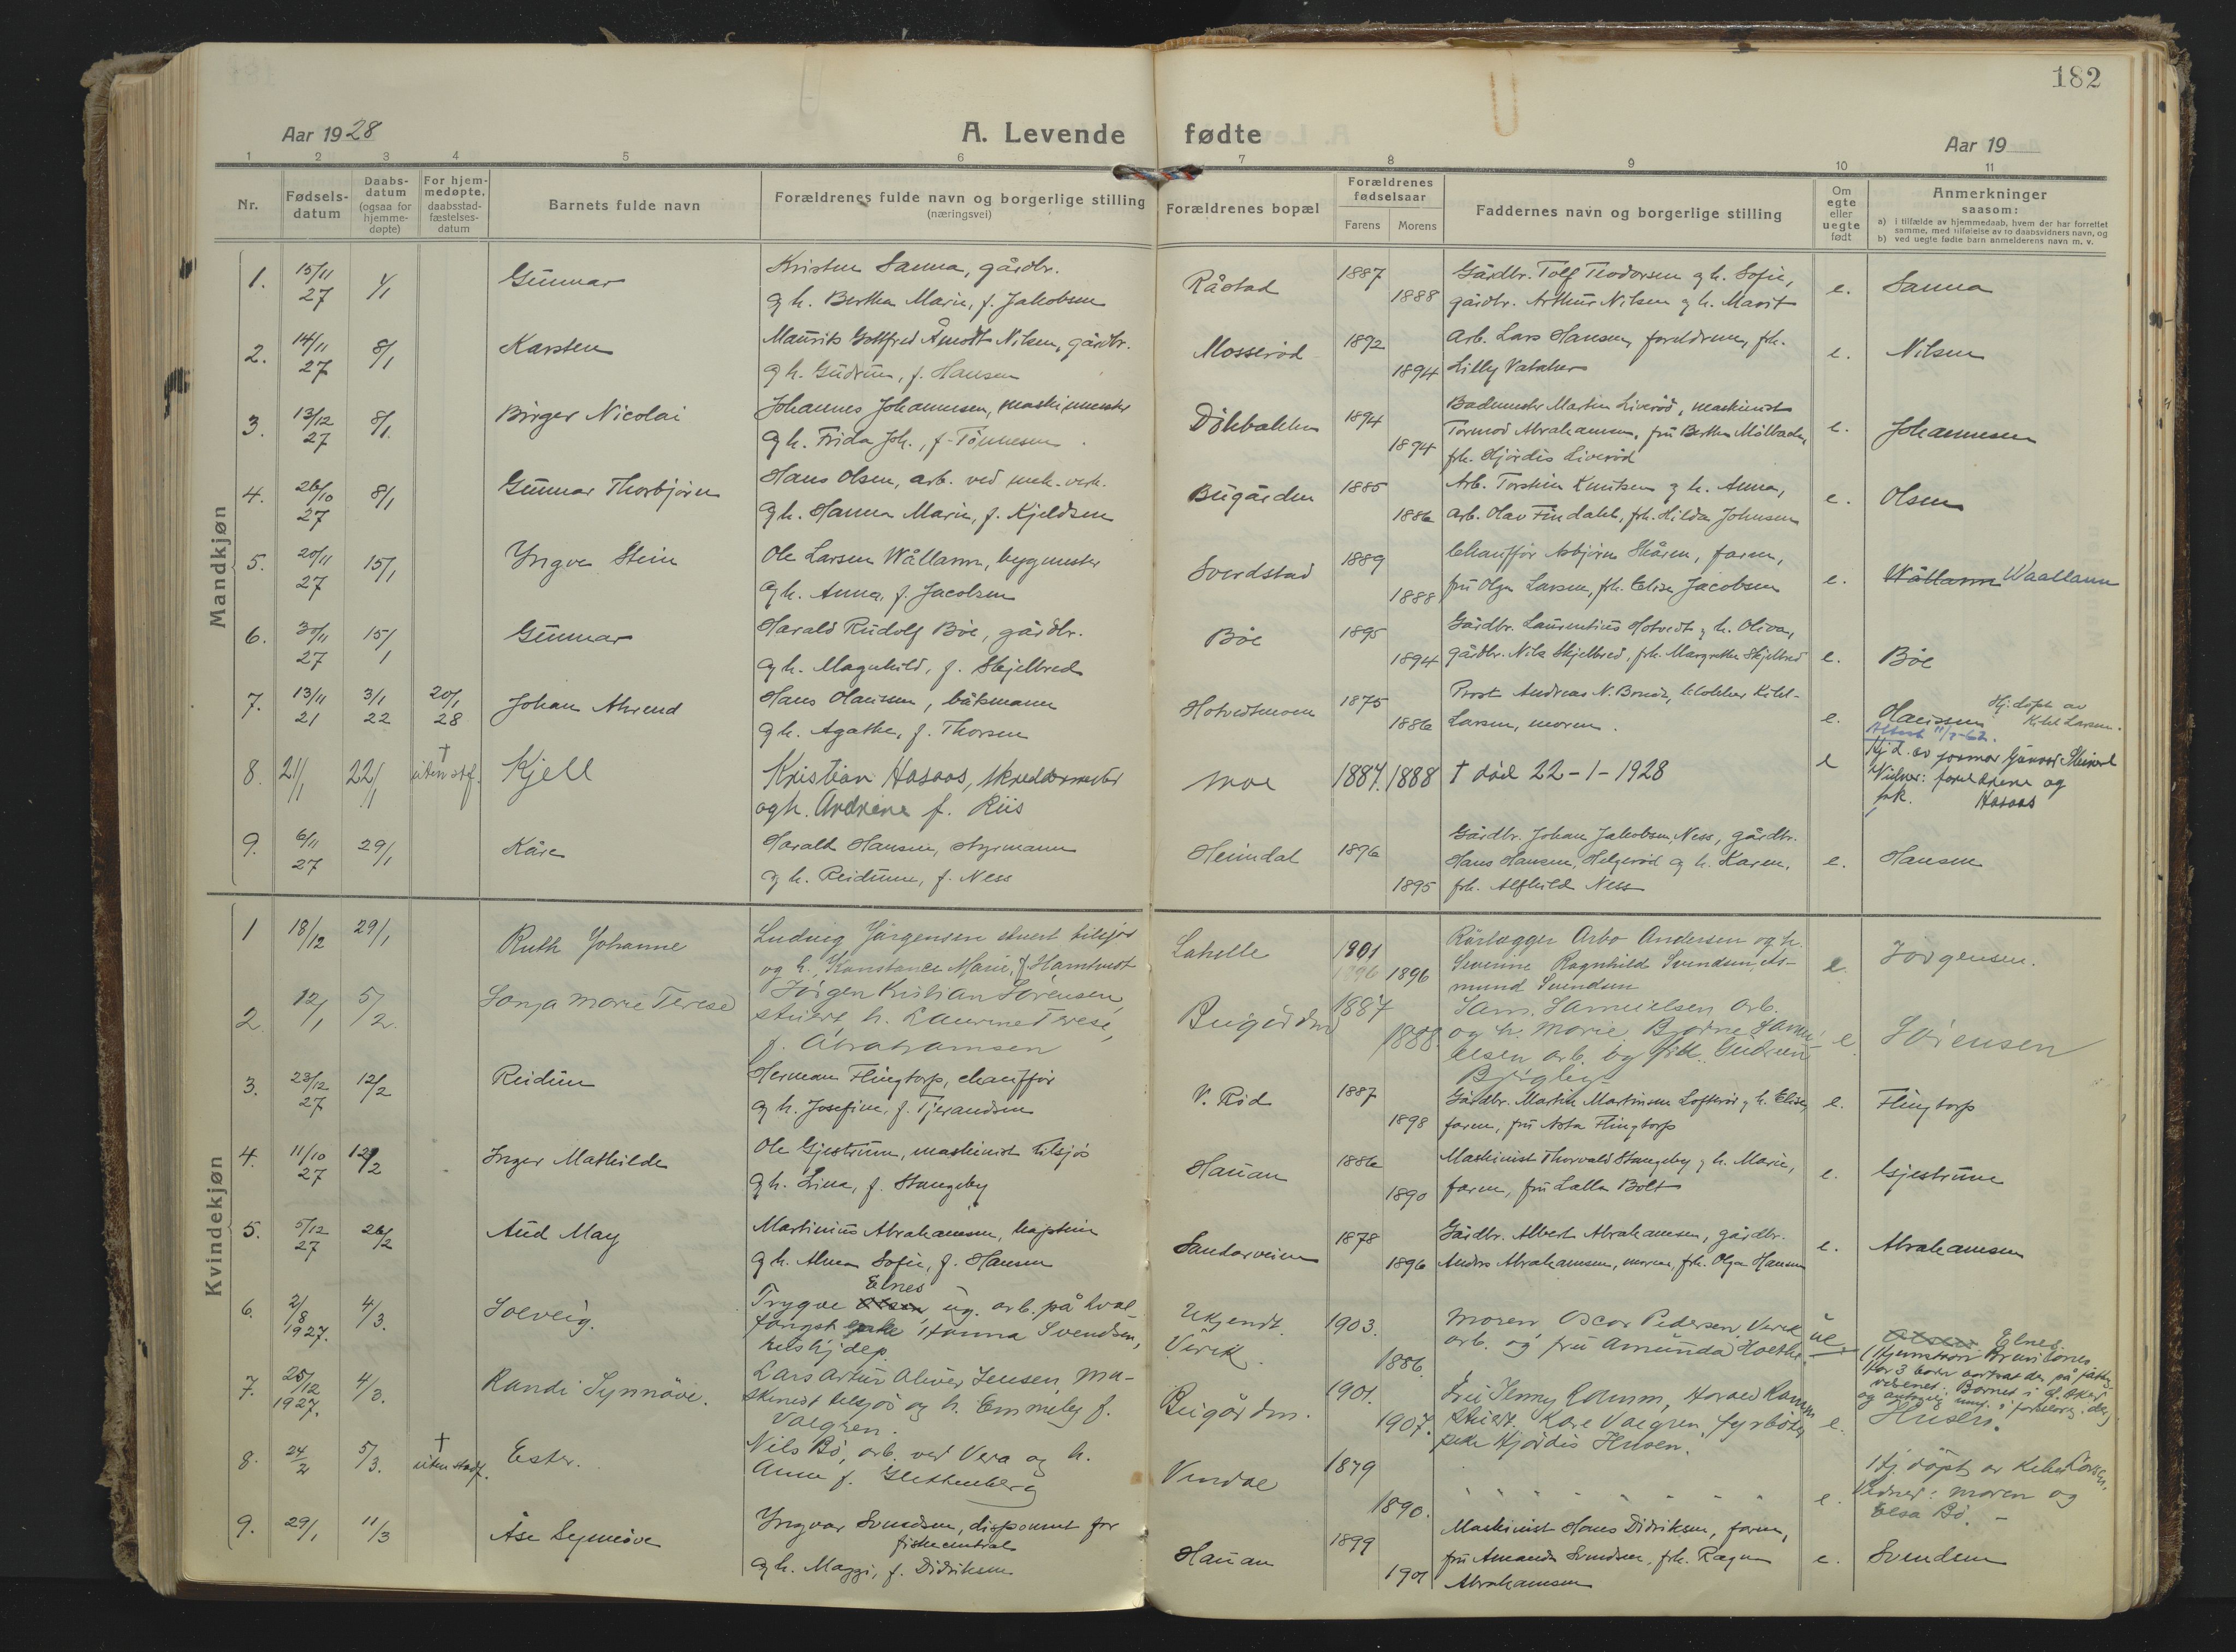 182
Aar 1928
A. Levende fødte
Aar 19
1 2 3 4 5 6 7 8 9 10 11
Nr.
Fødsels-
datum
Daabs-
datum
(ogsaa for
hjemme-
døpte)
For hjem-
medøpte,
daabsstad-
fæstelses-
datum
Barnets fulde navn
Forældrenes fulde navn og borgerlige stilling
(næringsvei)
Forældrenes bopæl
Forældrenes
fødselsaar
Farens Morens
Faddernes navn og borgerlige stilling
Om
egte
eller
uegte
født
Anmerkninger
saasom:
a) i tilfælde av hjemmedaab, hvem der har forrettet
samme, med tilføielse av to daabsvidners navn, og
b) ved uegte fødte barn anmelderens navn m. v.
Mandkjøn
1. 15/11 27 1/1 Gunnar
Kristen Sanna, gårdbr.
og h. Bertha Marie, f. Jakobsen
Råstad 1887 1888
Gårdbr. Tolf Teodorsen og h. Sofie,
gårdbr. Arthur Nilsen og h. Marit
e. Sanna
2. 14/11 27 8/1 Karsten
Maurits Gottfred Åmodt Nilsen, gårdbr.
og h. Gudrun, f. Hansen
Mosserød 1892 1894
Arb. Lars Hansen, foreldrene, frk.
Lilly
e. Nilsen
3. 13/12 27 8/1. Birger Nicolai
Johannes Johannesen, maskinmester
og h. Frida Joh., f. Tønnesen
Dölebakken 1894 1894
Bademester Martin Liverød, maskinist
Tormod Abrahamsen, fru Bertha
frk. Hjørdis Liverød
e. Johannesen
4. 26/10 27 8/1 Gunnar Thorbjørn
Hans Olsen, arb. ved mek. verk.
og h. Hanna Marie, f. Kjeldsen
Bugården 1885 1886
Arb. Torstein Knutsen og h. Anna,
arb. Olav Findahl, frk. Hilda Johnsen
e. Olsen
5. 20/11 27 15/1 Yngve Stein
Ole Larsen Wållann, byggmester
og h. Anna, f. Jacobsen
Sverdstad 1889 1888
Chauffør Asbjørn Skåren, faren,
fru Olga Larsen, frk. Elise Jacobsen
e. Wållann Waallann
6. 30/11 27 15/1 Gunnar
Harald Rudolf Bøe, gårdbr.
og h. Magnhild, f. Skjelbred
Bøe 1895 1894
Gårdbr. Laurentius Hotvedt og h. Oliva,
gårdbr. Nils Skjelbred, frk. Margrethe Skjelbred
e. Bøe
7. 13/11 21 3/1 22 20/1 28 Johan Ahrend
Hans Olaussen, båtsmann
og h. Agathe, f. Thorsen
Hotvedtmoen 1875 1886
Prost Andreas N. klokker Kihl-
Larsen, moren.
e. Olaussen Hj. døpt av
Kihl Larsen.
Attest
8. 21/1 22/1 † uten stf. Kjell
Kristian Hasaas, skreddermester
og h. Andrene f. Riis
Moe 1887. 1888
† död 22-1-1928
e Hj d. av jormor
Vidner: foreldrene og
frk. Hasaas
9. 6/11 27 29/1 Kåre
Harald Hansen, styrmann
og h. Reidunn, f. Ness
Heimdal 1896 1895
Gårdbr. Johan Jakobsen Ness, gårdbr.
Hans Hansen, Helgerød og h. Karen,
frk. Alfhild Ness
e. Hansen
Kvindekjøn
1 18/12 29/1 Ruth Johanne
Ludvig Jørgensen stuert tilsjøs
og h. Konstance Marie, f Hamtvedt
Lahelle 1901 1896 1896
Rørlægger Arbo Andersen og h.
Severine Ragnhild Svendsen, As-
mund Svendsen
e. Jørgensen.
2. 12/1 5/2. Sonja Marie Terese
Jörgen Kristian Sörensen,
stuert, h. Laurine Terese,
f. Abrahamsen
Bugården 1887 1888.
Sam. Samuelsen arb.
og h. Marie. Bjarne Samu-
elsen arb. og frk. Gudrun
e. Sörensen
3. 23/12 27 12/2 Reidun
Herman Flingtorp, chauffør
og h. Josefine, f. Tjerandsen
V. Rød 1887 1898
Gårdbr. Martin Martinsen Lofterød og h. Elise,
faren, fru Asta Flingtorp
e. Flingtorp
4. 11/10 27 12/2 Inger Mathilde
Ole Gjestrum, maskinist tilsjøs
og h. Lina, f. Stangeby
Hauan 1886 1890
Maskinist Thorvald Stangeby og h. Marie,
faren, fru Lalla Bolt
e. Gjestrum
5. 5/12 27 26/2 Aud May
Martinius Abrahamsen, kaptein
og h. Alma Sofie, f. Hansen
Sandarveien 1878 1896
Gårdbr. Albert Abrahamsen, gårdbr.
Anders Abrahamsen, moren, frk. Olga Hansen
e. Abrahamsen
6. 2/8 1927. 4/3. Solveig.
Elnes
Trygve Olsen, ug. arb. på hval
fangst Hanna Svendsen,
Ukjendt. Virik. 1903. 1886.
Moren, Oscar Pedersen, Virik
arb. og fru Amunda
ue. Olsen Elnes.
7. 25/12 1927. 4/3. Randi Synnöve.
Lars Artur Oliver Jensen, ma-
skinist tilsjös og h. Emmely f.
Valgren.
Bugården. 1901. 1907.
Fru Jenny Ramm, Harald Ramm
stuert. Kåre Valgren, fyrböter
frk. Hjördis Husen.
e. Husen.
8. 24/2 5/3. † uten stadf. Ester.
Nils Bö, arb. ved Vera og h.
Anna f. Glettenberg
Vindal 1879 1890.
" " " " " " "
e. Hj. döpt av Kihl Larsen.
Vidner: moren og
Elsa Bö. -
9. 29/1 11/3 Åse Synnöve
Yngvar Svendsen, disponent for
fiskecentral
og h. Maggi, f. Didriksen
Hauan 1899 1901
Maskinist Hans Didriksen, faren,
fru Amanda Svendsen, frk. Ragna
Abrahamsen
e. Svendsen